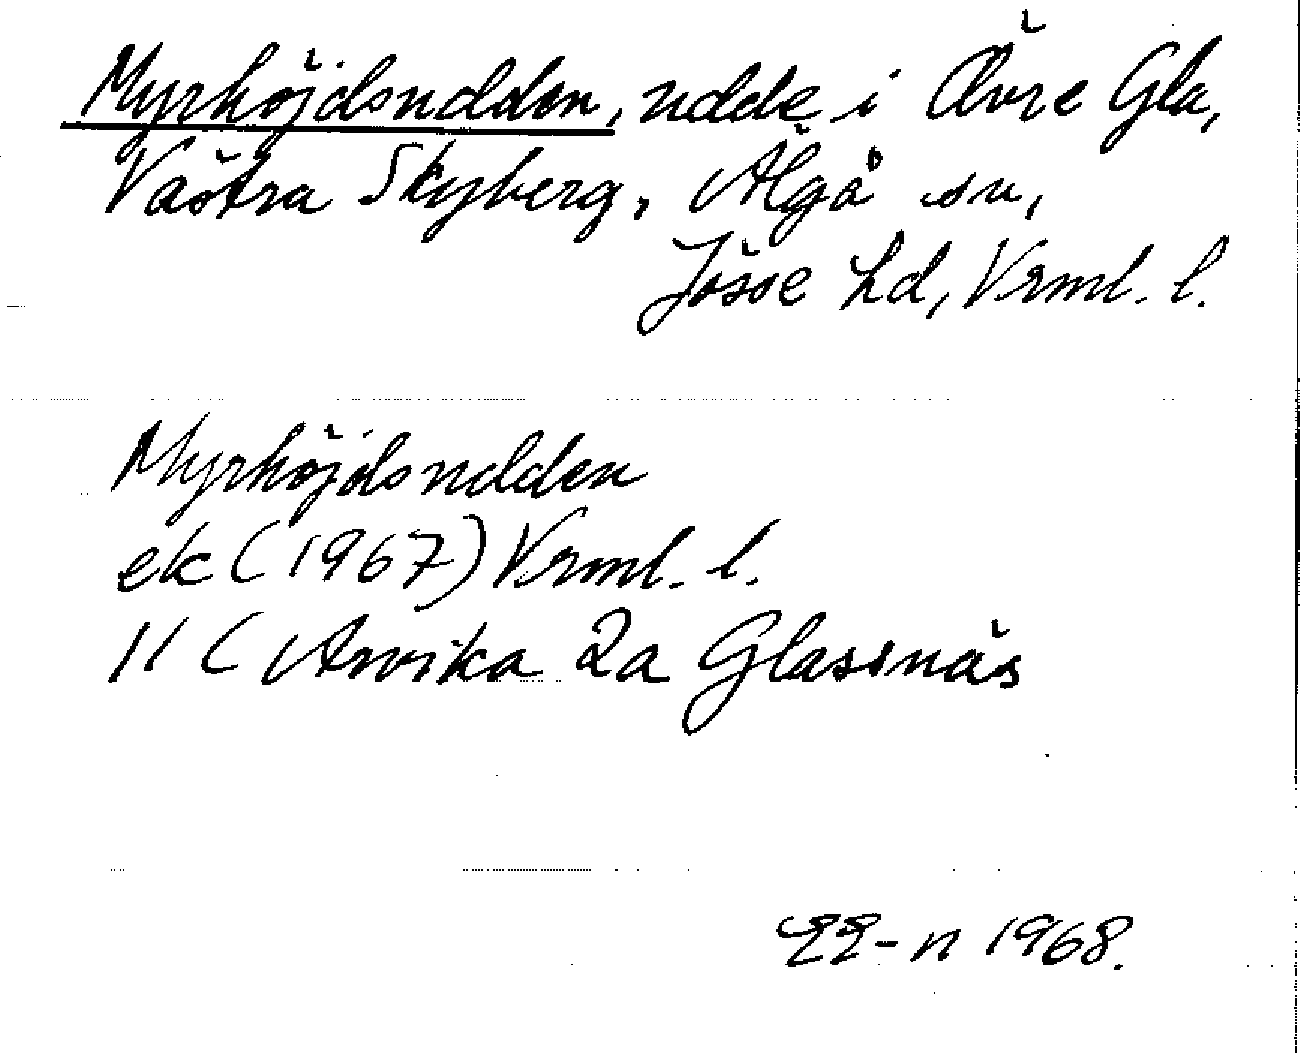 Myrhöjdsudden, udde i Övre Gla,
Västra Skyberg, Älgå sn,
Jösse hd, Vrml. l.
Myrhöjdsudden
ek (1967) Vrml. l.
11 C Arvika 2a Glassnäs
EE-n 1968.